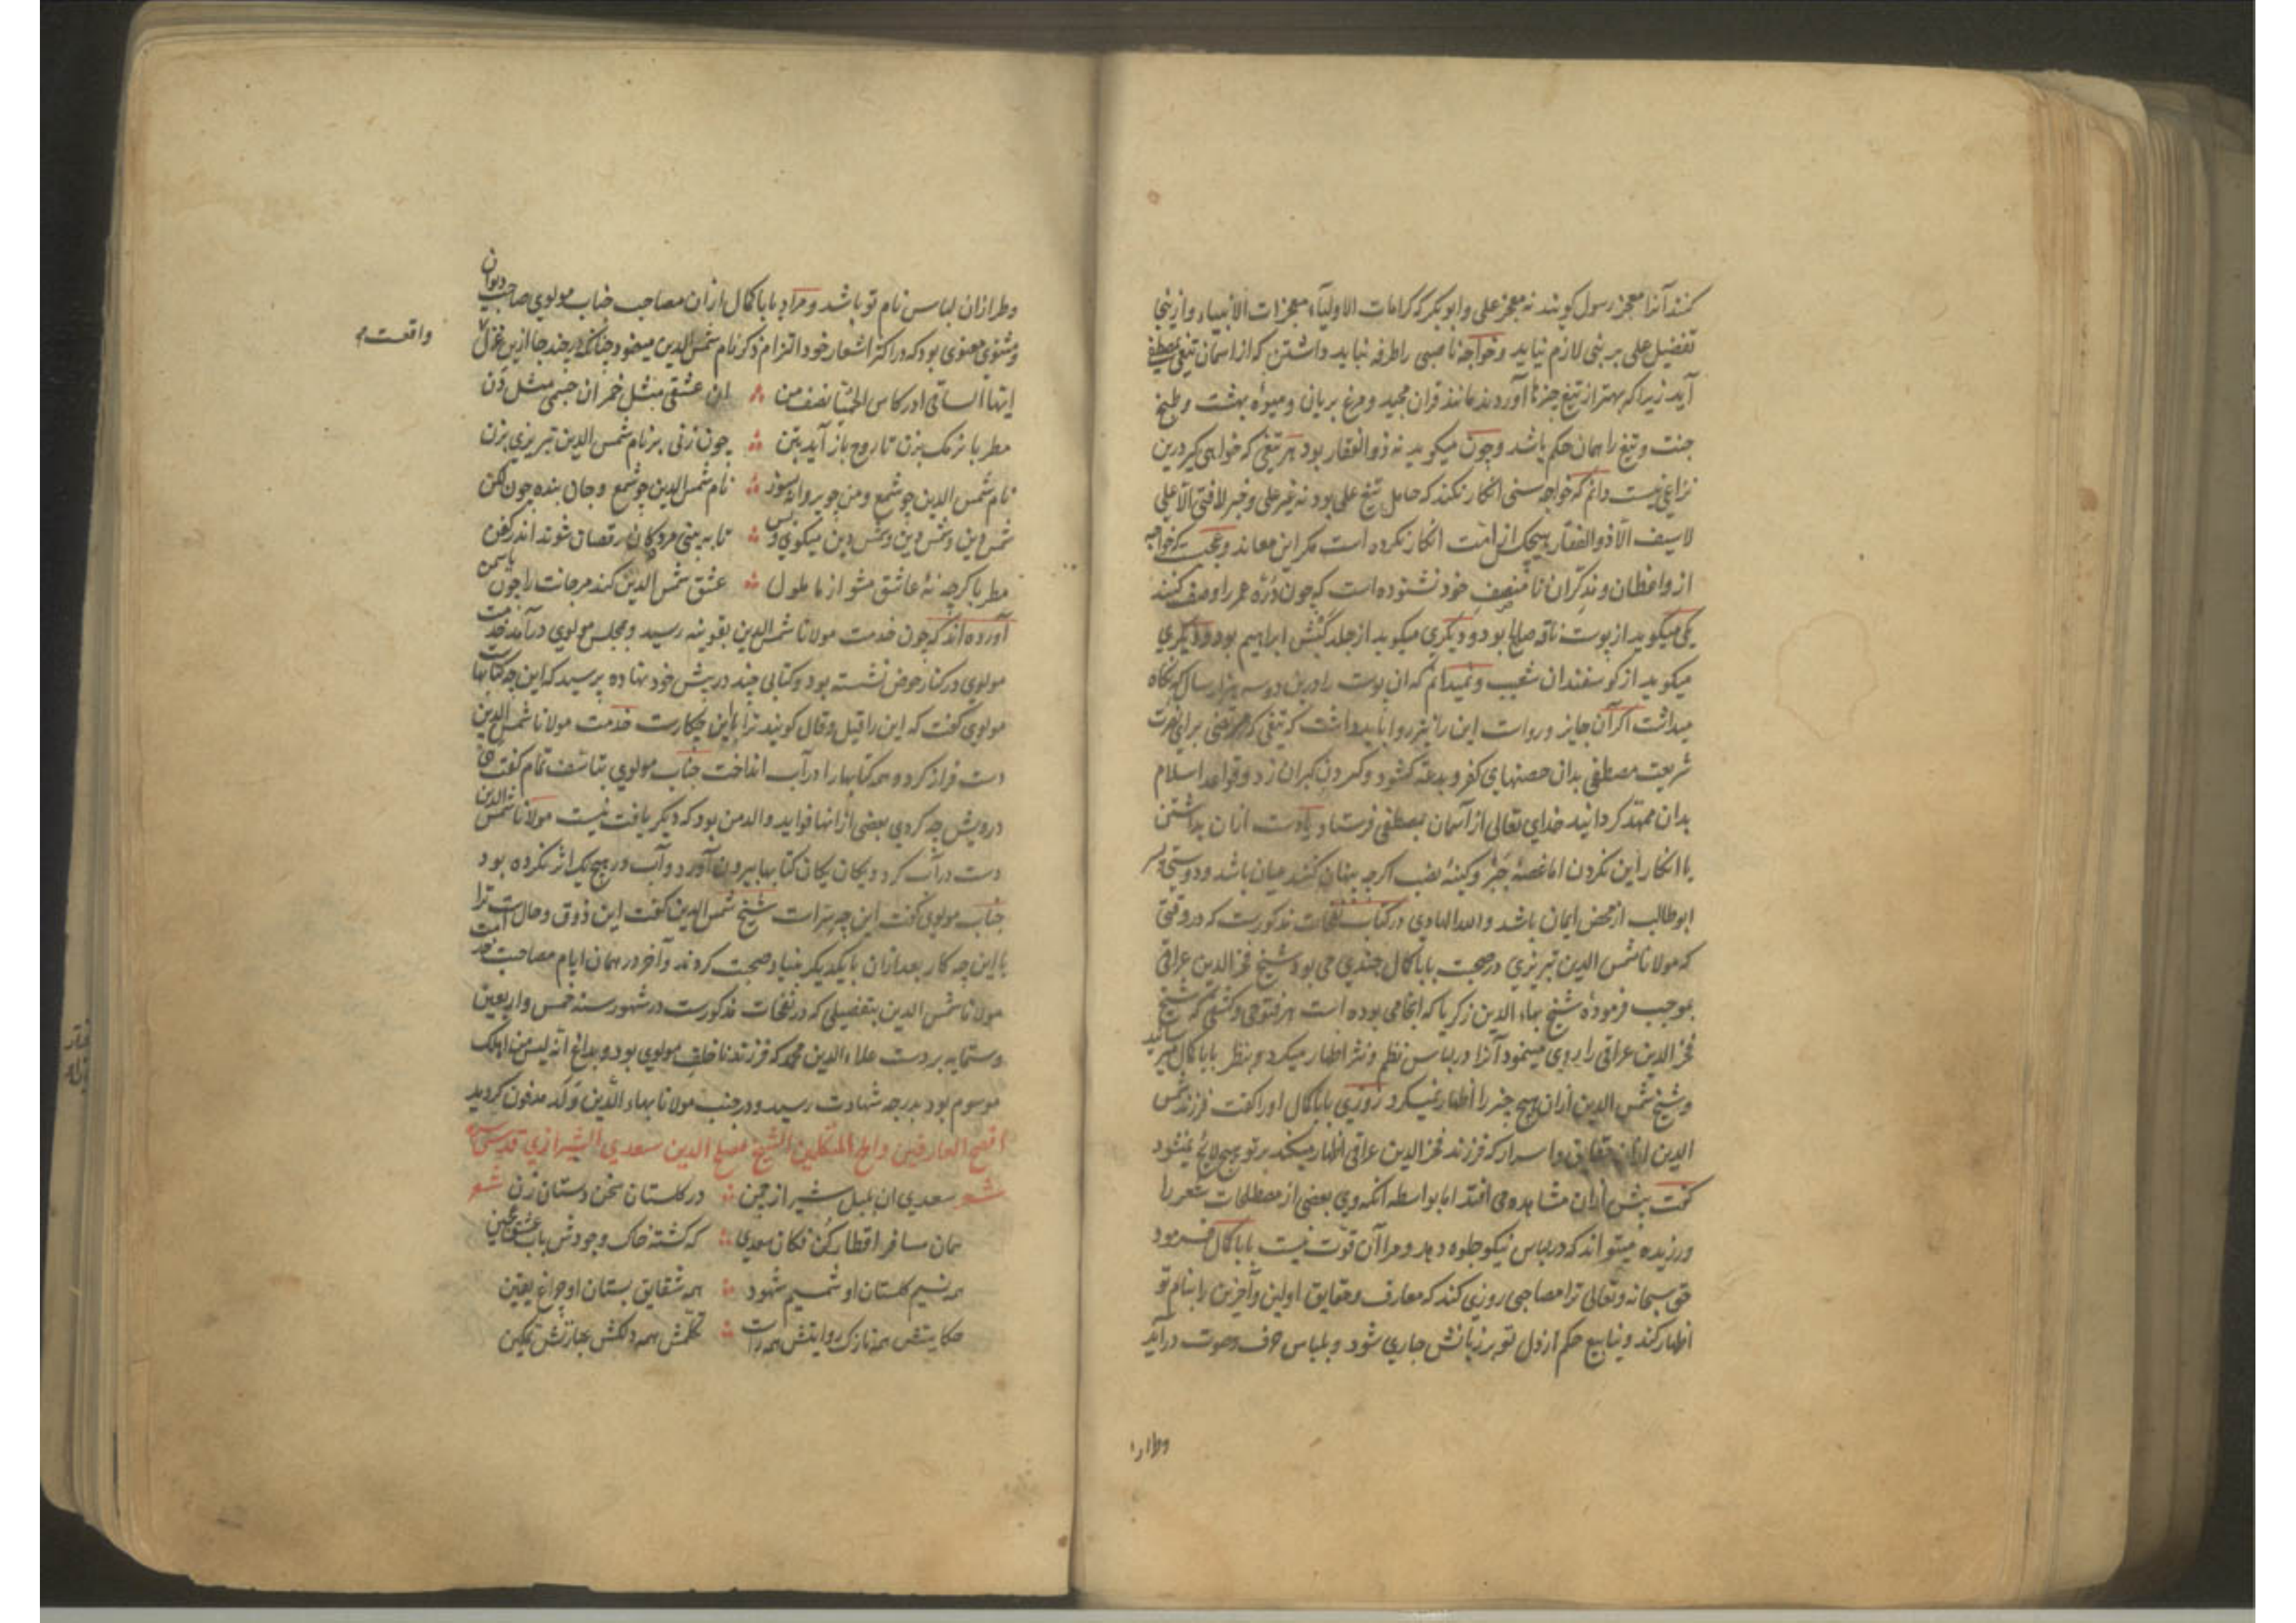 کنند آنرا معجز رسول کویند نه معجز علی وابو بکر که کرامات الاولیآء معجزات الانبیاء وازینجا
تفضیل علی بر نبی لازم نیاید وخواجهٔ ناصبی را طرفه نباید داشتن که از اسمان تیغی
آید زیرا که بهتر از تیغ چیزها آوردند مانند قران مجید ومرغ بریان ومیوهٔ بهشت وطبخ
جنت وتیغ را همان حکم باشد وچون میکوید نه ذوالفقار بود هر تیغی که خواهی کیر درین
نزاعی نیست دانم که خواجه سنی انکار نکند که حامل تیغ علی بود نه غیر علی وخبر لا فتی الا علی
لا سیف الا ذو الفقار هیچکس از امت انکار نکرده است مکر این معاند وعجب که خواجه
از واعظان ومذکران نا منصف خود نشنوده است که چون درّه عمر را وصف کنند
یکی میکوید از پوست ناقه صالح بود ودیکری میکوید از جلد کبش ابراهیم بود ودیکری
میکوید از کوسفندان شعیب ونمیدانم که ان پوست را درین دو سه هزار سال که نکاه
میداشت اکر آن جایز ورواست این را نیز روا باید داشت که تیغی که مرتضی برای نصرت
شریعت مصطفی بدان حصنهای کفر وبدعة کشود وکردن کبران زد وقواعد اسلام
بدان ممهّد کردانید خدای تعالی از آسمان بمصطفی فرستاد
یا انکار این نکردن اما غصهٔ وکینهٔ نصب اکرچه پنهان کنند عیان باشد ودوستی
ابوطالب از محض ایمان باشد والله الهادی در کتاب نفحات مذکورست که در وقتی
که مولانا شمس الدین تبریزی در صحبت بابا کمال جندی می بود شیخ فخر الدین عراقی
بموجب فرمودهٔ شیخ بهاء الدین زکریا که انجامی بوده است هر فتوحی وکشفی که شیخ
فخر الدین عراقی را روی مینمود آنرا در لباس نظم ونثر اظهار میکرد وبنظر بابا کمال میرسانید
وشیخ شمس الدین ازان هیچ چیز را اظهار نمیکرد روزی بابا کمال او را کفت فرزند شمس
الدین ازان حقایق واسرار که فرزند فخر الدین عراقی اظهار میکند بر تو هیچ لایح نمیشود
کفت بیش ازان مشاهده می افتد اما بواسطه انکه وی بعضی از مصطلحات شعر را
ورزیده میتواند که در لباس نیکو جلوه دهد ومرا آن قوّت نیست بابا کمال فرمود
حق سبحانه وتعالی ترا مصاحبی روزی کند که معارف وحقایق اولین وآخرین را بنام تو
اظهار کند وینابیع حکم از دل تو بر زبانش جاری شود وبلباس حرف وصوت درآید
وطراز
وطراز ان لباس نام تو باشد ومراد بابا کمال ازان مصاحب جناب مولوی صاحب دیوان
ومثنوی معنوی بود که در اکثر اشعار خود التزام ذکر نام شمس الدین مینمود چنانکه در چند جا ازین غزل
واقعست م
ایها الساقی ادر کاس الحمیّا نصف من ؞ ان عشقی مثل خمر ان جسمی مثل دن
مطربا نرمک بزن تا روح باز آید بتن ؞ چون زنی بر نام شمس الدین تبریزی بزن
نام شمس الدین چو شمع ومن چو پروانه بسوز ؞ نام شمس الدین چو شمع وجان بنده چون لکن
شمس دین وشمس دین وشمس دین میکوی وبس ؞ تا ببینی مردکان رقصان شوند اندر کفن
مطربا کرچه نهٔ عاشق مشو از ما ملول ؞ عشق شمس الدین کند مر جانت را چون یاسمن
آورده اند که چون خدمت مولانا شمس الدین بقونیه رسید وبمجلس مولوی درآمد خدمت
مولوی در کنار حوض نشسته بود وکتابی چند در پیش خود نهاده پرسید که این چه کتابهاست
مولوی کفت که این را قیل وقال کویند ترا با این چکارست خدمت مولانا شمس الدین
دست فراز کرده همه کتابها را در آب انداخت جناب مولوی بتاسف تمام کفت هی
درویش چه کردی بعضی از انها فواید والد من بود که دیکر یافت نیست مولانا شمس الدین
دست در آب کرد ویکان یکان کتابها بیرون آورد وآب در هیچ یک اثر نکرده بود
جناب مولوی کفت این چه سرّ است شیخ شمس الدین کفت این ذوق وحال است ترا
با این چه کار بعد ازان با یکدیکر بنیاد صحبت کردند وآخر در همان ایام مصاحبت خدمت
مولانا شمس الدین بتفصیلی که در نفحات مذکورست در شهور سنه خمس واربعین
وستمایه بر دست علاء الدین محمد که فرزند ناخلف مولوی بود وبداغ انه لیس من اهلک
موسوم بود بدرجه شهادت رسید ودر جنب مولانا بهاء الدین ولد مدفون کردید
افصح العارفین واملح المتکلمین الشیخ مصلح الدین سعدی الشیرازی قدس سره
شعر سعدی ان بلبل شیراز چمن ؞ در کلستان سخن دستان زن شعر
همان مسافر اقطار کن فکان سعدی ؞ که کشته خاک وجودش بآب عشق عجین
همه نسیم کلستان او شمیم شهود ؞ همه شقایق بستان او چراغ یقین
حکایتش همه نازک روایتش همه راست ؞ تکلمش همه دلکش عبارتش تمکین